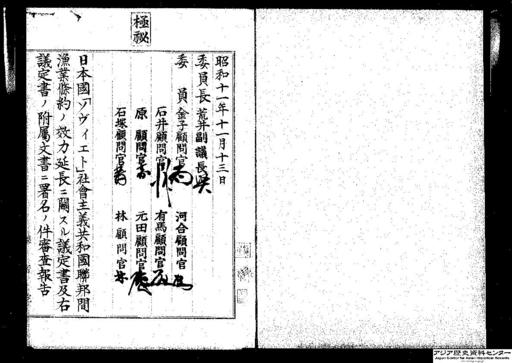 極秘
昭和十一年十一月十三日
委員長 荒井副議長
委員 金子顧問官 河合顧問官
石井顧問官 有馬顧問官
原顧問官 元田顧問官
石塚顧問官 林顧問官
日本國「ソヴィエト」社會主義共和國聯邦間
漁業條約ノ效力延長ニ關スル議定書及右
議定書ノ附屬文書ニ署名ノ件審査報告
アジア歴史資料センター
Japan Center for Asian Historical Records